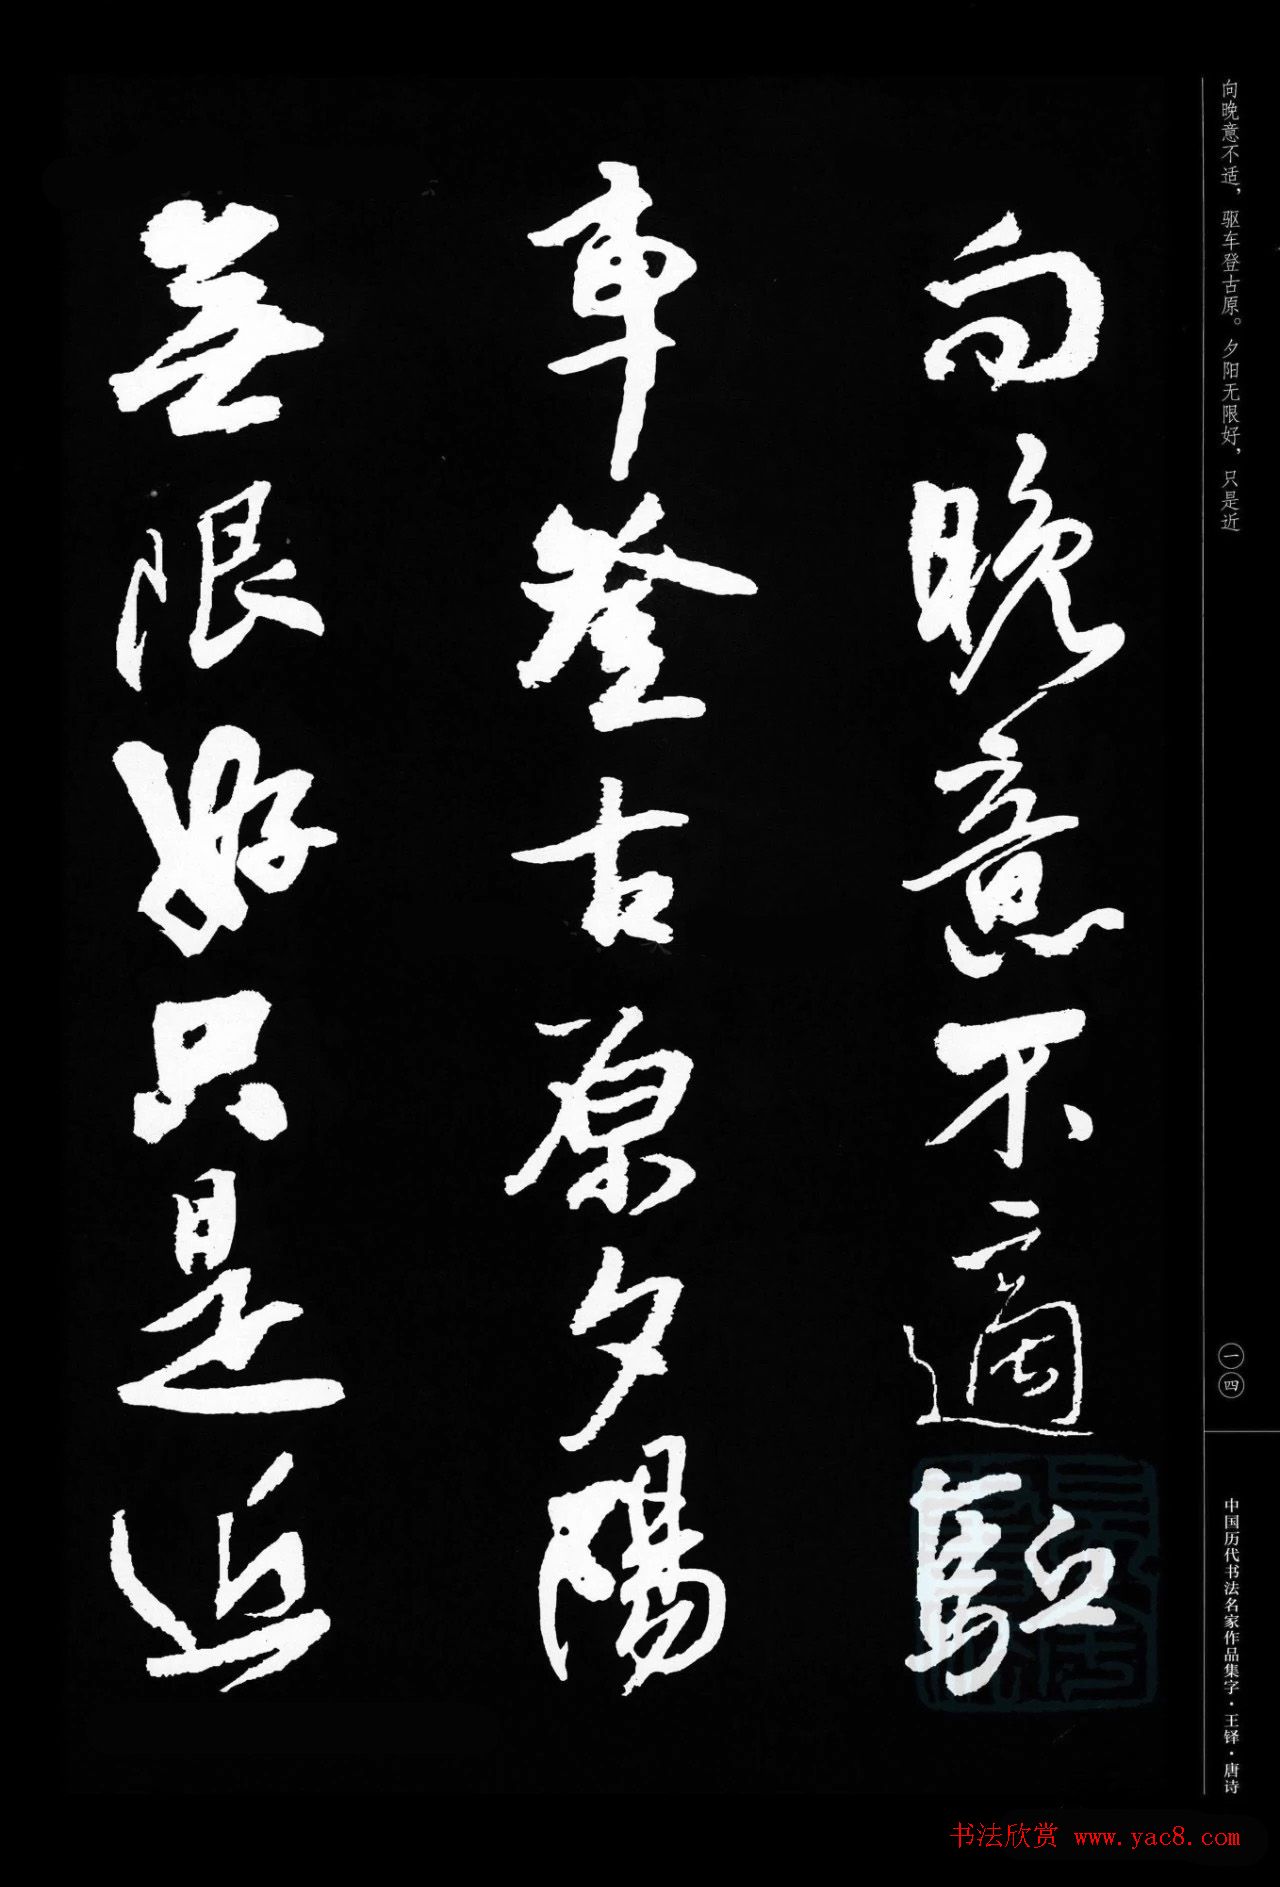 向晚意不適驅
車登古原夕陽
無限好只是近
向晚意不适，驱车登古原。夕阳无限好，只是近
一四
中国历代书法名家作品集字·王铎·唐诗
书法欣赏 www.yac8.com